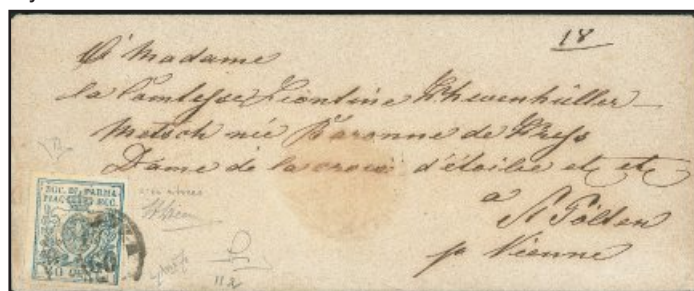 18
A Madame
la Comtesse Léontine Khevenhüller
Metsch née Baronne de
Dame de la croix d'étoilée et et
a
St Pölten
p Vienne
DUC. DI PARMA
PIAC. ECC.
40 CENT
112